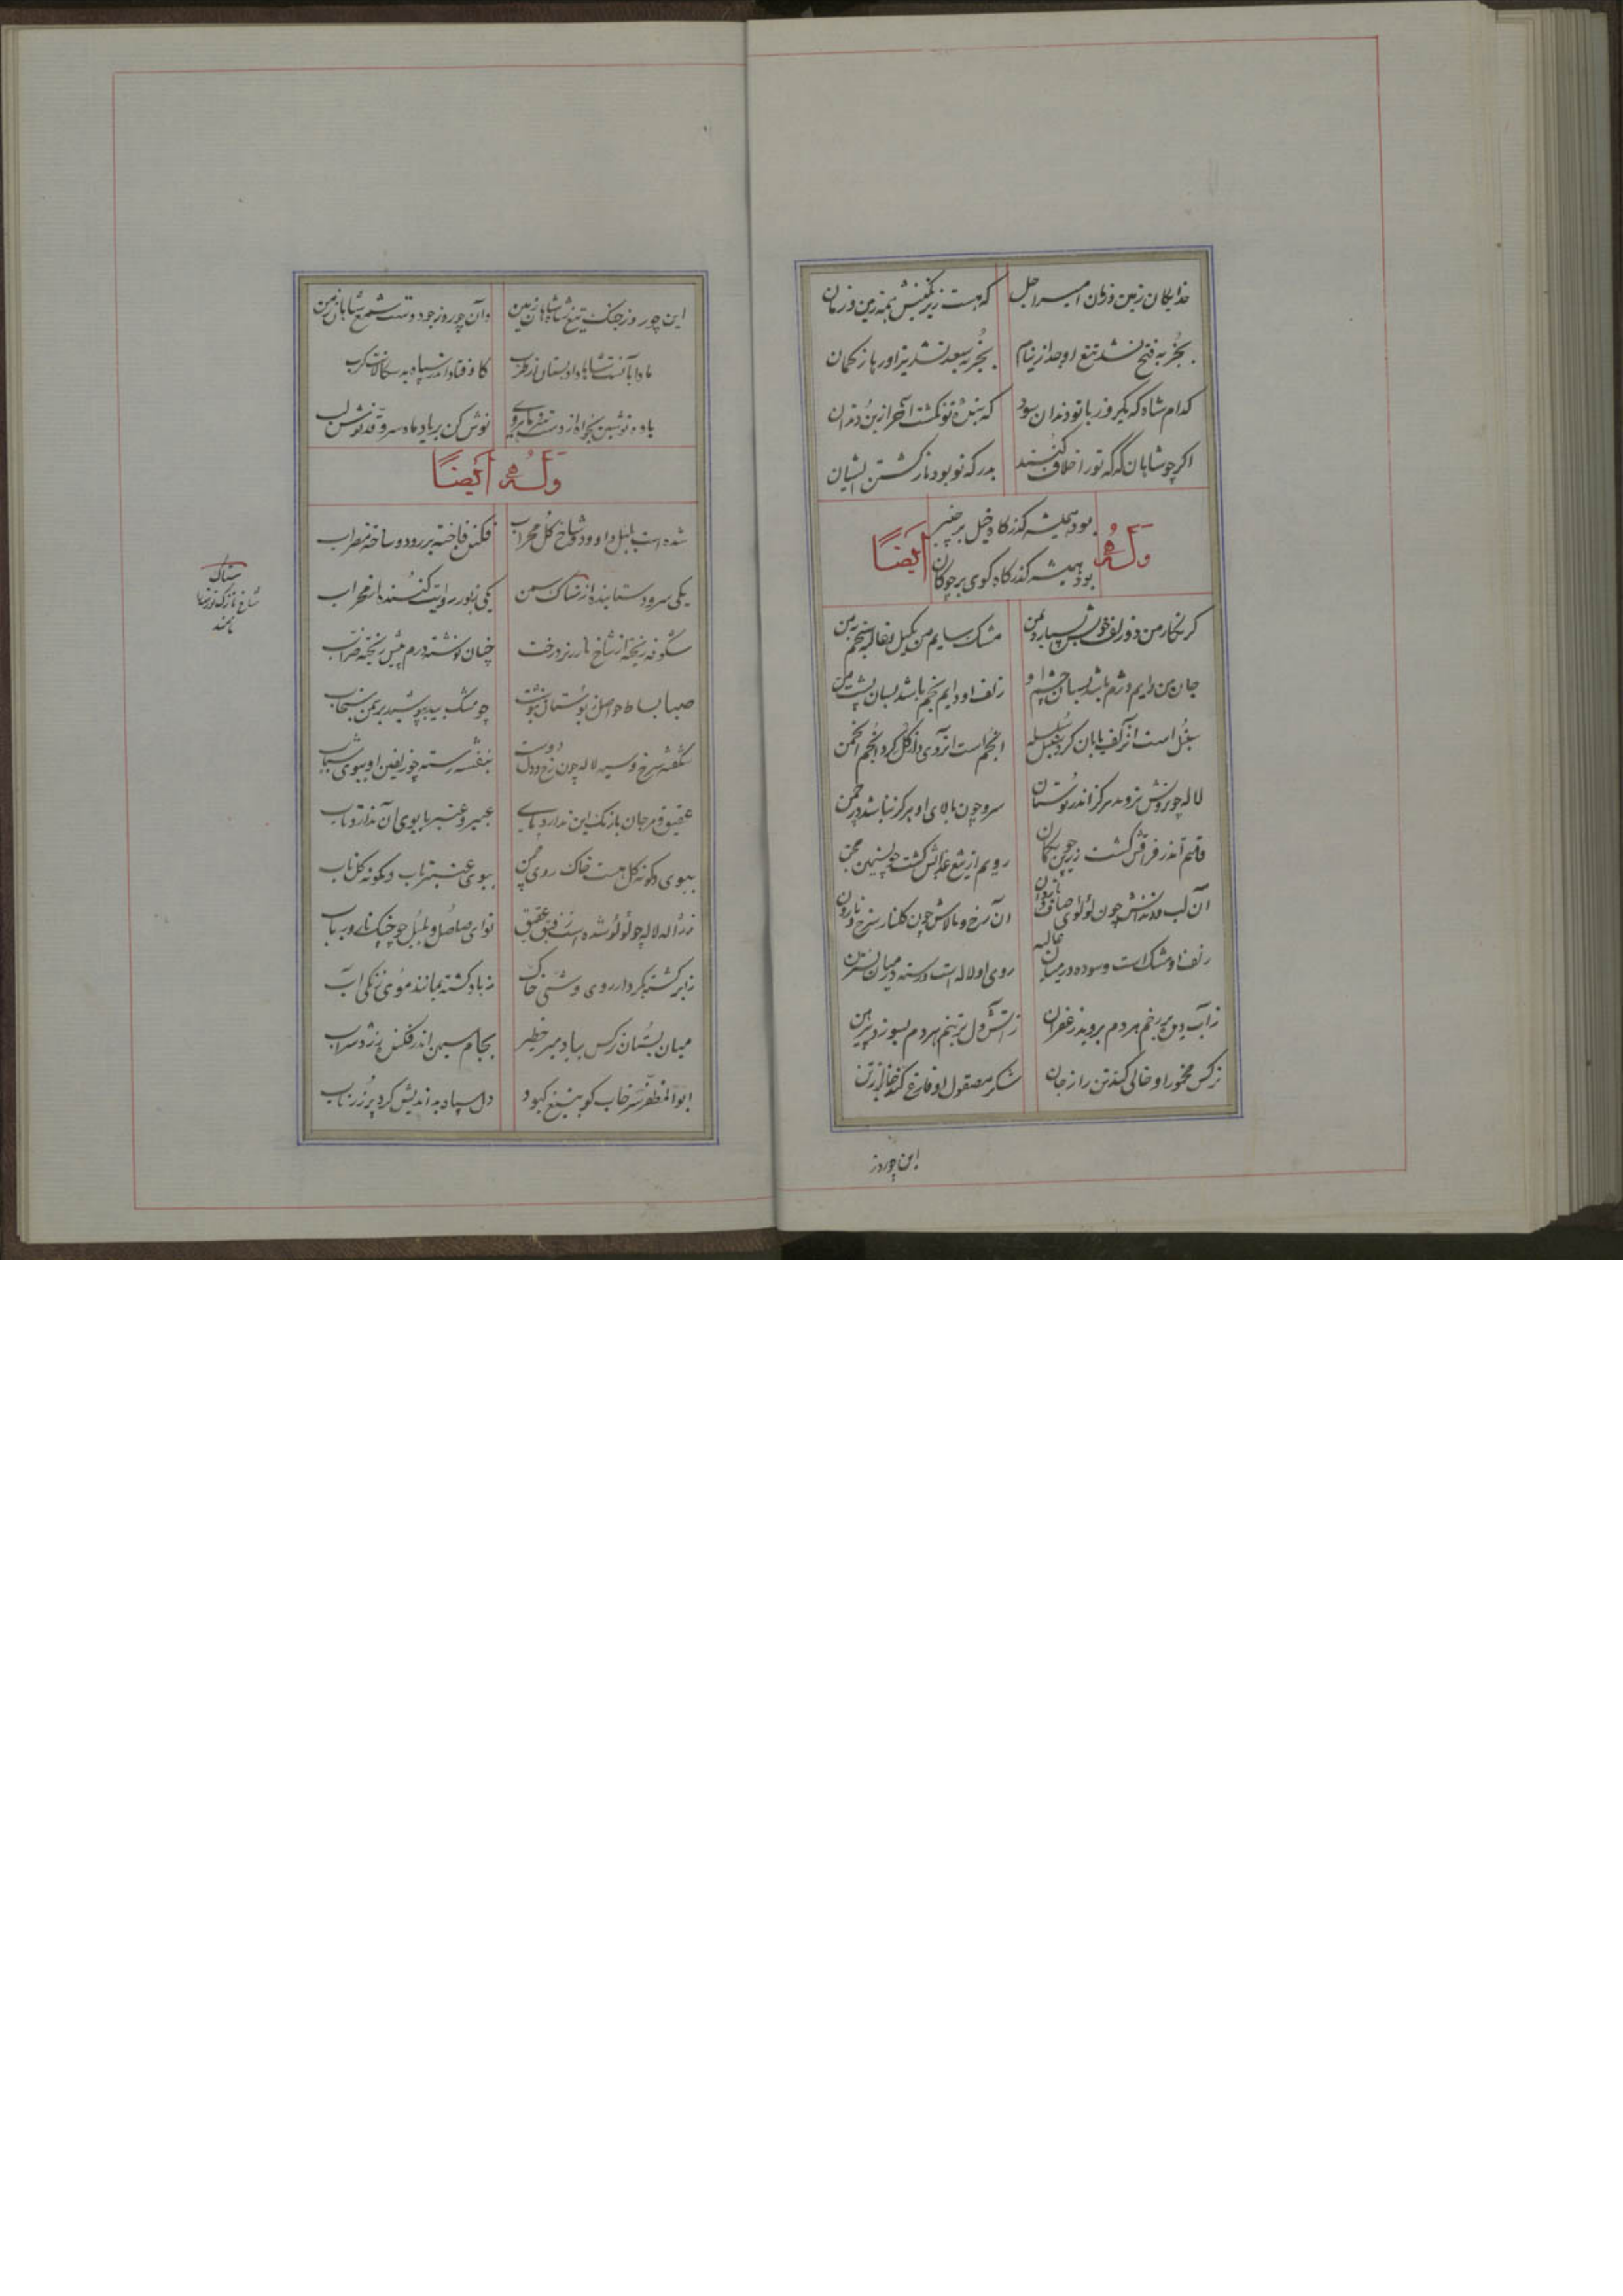 خدایکان زمین و زمان امیر اجل که هست زیر نکینش همه زمین و زمان
بجز به فتح نشد تیغ او جدا از نیام بجز به سعد نشد تیر او رها ز کمان
کدام شاه که یکروز با تو دندان سود که بنده تو نکشت آخر از بن دندان
اکر چو شاهان که که تو را خلاف کنند بدرکه تو بود بازکشتن ایشان
بود همیشه کذرکاه خیل بر چنبر
بود همیشه کذرکاه کوی بر چوکان
وله ایضا
کر نکار من دو زلف خویش بسپارد بمن مشک سایم من بکیل و غالیه سنجم بمن
جان من دایم دژم باشد بسان چشم او زلف او دایم بخم باشد بسان پشت من
سنبل است آن زلف تابان کرد سنبل سلسله انجم است آن روی و از کل کرد انجم انجمن
لاله چو رویش نروید هرکز اندر بوستان سرو چون بالای او هرکز نباشد در چمن
قامتم اندر فراقش کشت زرین چون کمان رویم از تیغ عذابش کشت چون سیمین مجن
آن لب و دندانش چون لولوی صافی ناردان آن رخ و بالاش چون کلنار سرخ و نارون
زلف او مشک است و سوده در میان غالیه روی او لاله است و رسته در میان نسترن
ز آب دیده بر رخم هر دم بروید زعفران ز آتش دل بر تنم هر دم بسوزد پیرهن
نرکس مخمور او خالی کند تن را ز جان شکر مصقول او فارغ کند جان را ز تن
این چو روز
این چو روز جنک تیغ شاه شاهان زمین وآن چو روز جود دست شمع شاهان زمن
باده نوشین بخواه از دست ماه روی نوش کن بر یاد ماه سرو قد نوش لب
وله ایضا
شده است بلبل داوود و شاخ کل محراب فکنده فاخته بر رود و ساخته مضراب
یکی سرود ستاینده از ستاک سمن یکی زبور روایت کننده از محراب
ستاک
شاخ نازک نورسته را
نامند
شکوفه ریخته از شاخ نار زیر درخت چنان کجوشته درم پیش ریخته ضراب
صبا بساط حواصل ز بوستان بنوشت چو مشک بید بپوشید بر چمن سنجاب
شکفته سرخ و سیه لاله چون رخ و دل دوست بنفشه رسته چو زلفین او ببوی شباب
عقیق و مرجان با رنک این ندارد پای عبیر و عنبر با بوی آن ندارد تاب
ببوی و کونه کل هست خاک روی چمن ببوی عنبر ناب و بکونه کل ناب
ز ژاله لاله چو لولو شده است رفیق عقیق نوای صلصل و بلبل چو چنک و نای و رباب
ز ابر کشته بکردار روی وشی خاک ز باد کشته بمانند موی زنکی آب
میان بستان نرکس بیاد میر خطیر بجام سیمین اندر فکنده زرد شراب
ابوالمظفر سرخاب کو بتیغ کبود دل سپاه بداندیش کرد پر زرناب